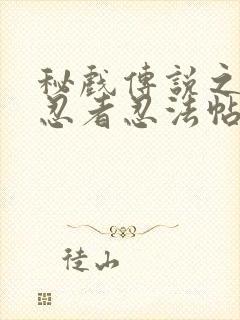 秘戲傳説之
忍者忍法帖
徒山